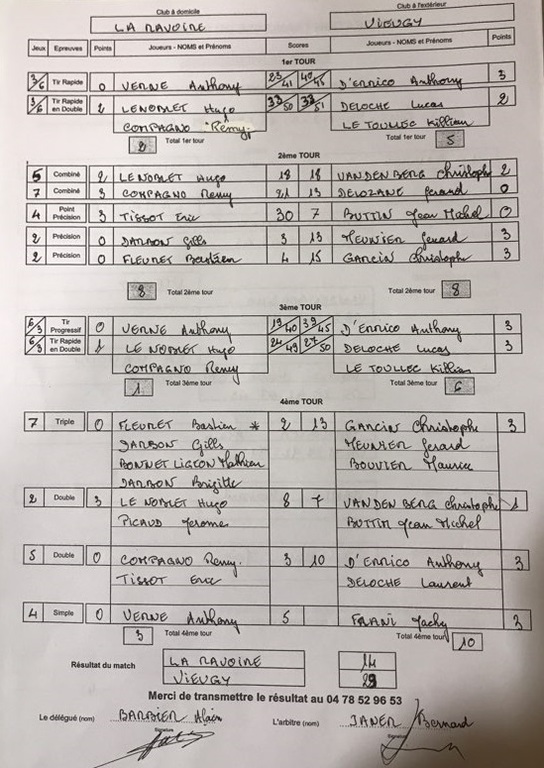 Club à domicile Club à l'extérieur
LA RAVOIRE VIEUGY
Jeux Epreuves Points Joueurs - NOMS et Prénoms Scores Joueurs - NOMS et Prénoms Points
1er TOUR
3/6 Tir Rapide 0 VERNE Anthony 23/41 40/45 D'ERRICO Anthony 3
3/6 Tir Rapide en Double 2 LENOBLET Hugo 33/50 33/51 DELOCHE Lucas 2
COMPAGNO Remy. LE TOULLEC Killian
2 Total 1er tour 5
2ème TOUR
5 Combiné 2 LENOBLET Hugo 18 18 VANDENBERG Christophe 2
7 Combiné 3 COMPAGNO Remy 21 13 DELOZANE Gerard 0
4 Point Précision 3 TISSOT Eric 30 7 BUTTIN Jean Michel 0
2 Précision 0 DARBON Gills 3 13 MEUNIER Gerard 3
2 Précision 0 FLEURET Bastien 4 15 GARCIN Christophe 3
8 Total 2ème tour Total 2ème tour 8
3ème TOUR
6/3 Tir Progressif 0 VERNE Anthony 19/40 39/45 D'ERRICO Anthony 3
6/3 Tir Rapide en Double 1 LE NOBLET Hugo 24/49 27/50 DELOCHE Lucas 3
COMPAGNO Remy LE TOULLEC Killian
1 Total 3ème tour 6
4ème TOUR
7 Triple 0 FLEURET Bastien * 2 13 GARCIN Christophe 3
DARBON Gills MEUNIER Gerard
BONNET LIGEON Mathieu BOUVIER Maurice
DARBON Brigitte
2 Double 3 LE NOBLET Hugo 8 7 VANDENBERG Christophe 1
PICAUD Jerome BUTTIN Jean Michel
5 Double 0 COMPAGNO Remy. 3 10 D'ERRICO Anthony 3
TISSOT Eric DELOCHE Laurent
4 Simple 0 VERNE Anthony 5 FRANI Jacky 3
3 Total 4ème tour Total 4ème tour 10
Résultat du match LA RAVOIRE 14
VIEUGY 29
Merci de transmettre le résultat au 04 78 52 96 53
Le délégué (nom) BARBIER Alain L'arbitre (nom) JANER Bernard
Signature Signature